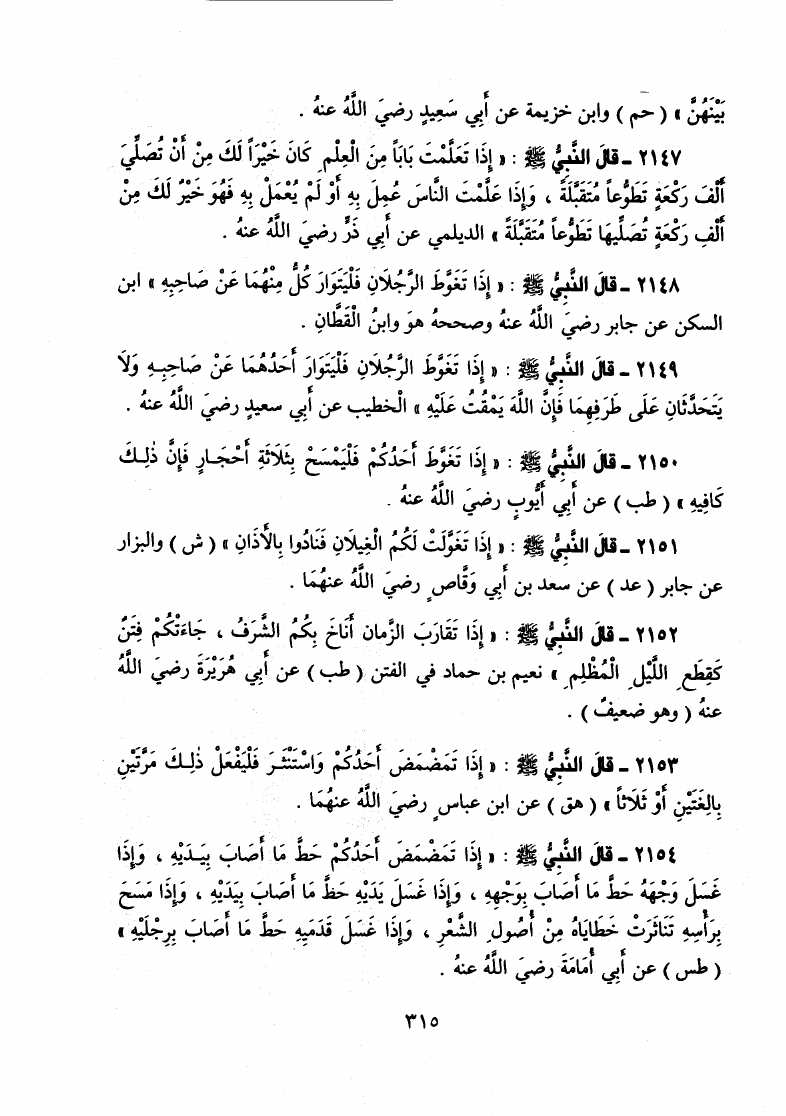 بَيْنَهُنَّ » ( حم ) وابن خزيمة عن أَبي سَعِيدٍ رضيَ اللَّهُ عنهُ .
٢١٤٧ ـ قالَ النَّبِيُّ ﷺ : « إِذَا تَعَلَّمْتَ بَاباً مِنَ الْعِلْمِ كَانَ خَيْراً لَكَ مِنْ أَنْ تُصَلِّيَ
أَلْفَ رَكْعَةٍ تَطَوُّعاً مُتَقَبَّلَةً ، وَإِذَا عَلَّمْتَ النَّاسَ عُمِلَ بِهِ أَوْ لَمْ يُعْمَلْ بِهِ فَهُوَ خَيْرٌ لَكَ مِنْ
أَلْفِ رَكْعَةٍ تُصَلِّيهَا تَطَوُّعاً مُتَقَبَّلَةً » الديلمي عن أَبي ذَرٍّ رضيَ اللَّهُ عنهُ .
٢١٤٨ ـ قالَ النَّبِيُّ ﷺ : « إِذَا تَغَوَّطَ الرَّجُلَانِ فَلْيَتَوَارَ كُلٌّ مِنْهُمَا عَنْ صَاحِبِهِ » ابن
السكن عن جابر رضيَ اللَّهُ عنهُ وصححهُ هوَ وابنُ الْقَطَّانِ .
٢١٤٩ ـ قالَ النَّبِيُّ ﷺ : « إِذَا تَغَوَّطَ الرَّجُلَانِ فَلْيَتَوَارَ أَحَدُهُمَا عَنْ صَاحِبِهِ وَلَا
يَتَحَدَّثَانِ عَلَى طَرَفِهِمَا فَإِنَّ اللَّهَ يَمْقُتُ عَلَيْهِ » الْخطيب عن أَبي سعيدٍ رضيَ اللَّهُ عنهُ .
٢١٥٠ ـ قالَ النَّبِيُّ ﷺ : « إِذَا تَغَوَّطَ أَحَدُكُمْ فَلْيَمْسَحْ بِثَلَاثَةِ أَحْجَارٍ فَإِنَّ ذٰلِكَ
كَافِيهِ » ( طب ) عن أَبي أَيُّوبٍ رضيَ اللَّهُ عنهُ .
٢١٥١ ـ قالَ النَّبِيُّ ﷺ : « إِذَا تَغَوَّلَتْ لَكُمُ الْغِيلَانِ فَنَادُوا بِالْأَذَانِ » ( ش ) والبزار
عن جابر ( عد ) عن سعد بن أَبي وَقَّاصٍ رضيَ اللَّهُ عنهُمَا .
٢١٥٢ ـ قالَ النَّبِيُّ ﷺ : « إِذَا تَقَارَبَ الزَّمان أَنَاخَ بِكُمُ الشَّرَفُ ، جَاءَتْكُمْ فِتَنٌ
كَقِطَعِ اللَّيْلِ الْمُظْلِمِ » نعيم بن حماد في الفتن ( طب ) عن أَبي هُرَيْرَةَ رضيَ اللَّهُ
عنهُ ( وهو ضعيفٌ ) .
٢١٥٣ ـ قالَ النَّبِيُّ ﷺ : « إِذَا تَمَضْمَضَ أَحَدُكُمْ وَاسْتَنْثَرَ فَلْيَفْعَلْ ذٰلِكَ مَرَّتَيْنِ
بِالِغَتَيْنِ أَوْ ثَلَاثاً » ( هق ) عن ابن عباسٍ رضيَ اللَّهُ عنهُمَا .
٢١٥٤ ـ قالَ النَّبِيُّ ﷺ : « إِذَا تَمَضْمَضَ أَحَدُكُمْ حَطَّ مَا أَصَابَ بِيَدَيْهِ ، وَإِذَا
غَسَلَ وَجْهَهُ حَطَّ مَا أَصَابَ بِوَجْهِهِ ، وَإِذَا غَسَلَ يَدَيْهِ حَطَّ مَا أَصَابَ بِيَدَيْهِ ، وَإِذَا مَسَحَ
بِرَأْسِهِ تَنَاثَرَتْ خَطَايَاهُ مِنْ أُصُولِ الشَّعْرِ ، وَإِذَا غَسَلَ قَدَمَيهِ حَطَّ مَا أَصَابَ بِرِجْلَيْهِ »
( طس ) عن أَبي أُمَامَةَ رضيَ اللَّهُ عنهُ .
٣١٥